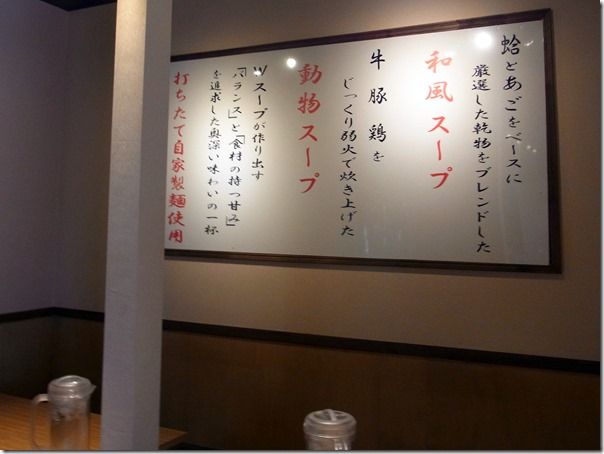 蛤とあごをベースに
厳選した乾物をブレンドした
和風スープ
牛豚鶏を
じっくり弱火で炊き上げた
動物スープ
Wスープが作り出す
「バランス」と「食材の持つ甘み」
を追求した奥深い味わいの一杯
打ちたて自家製麺使用